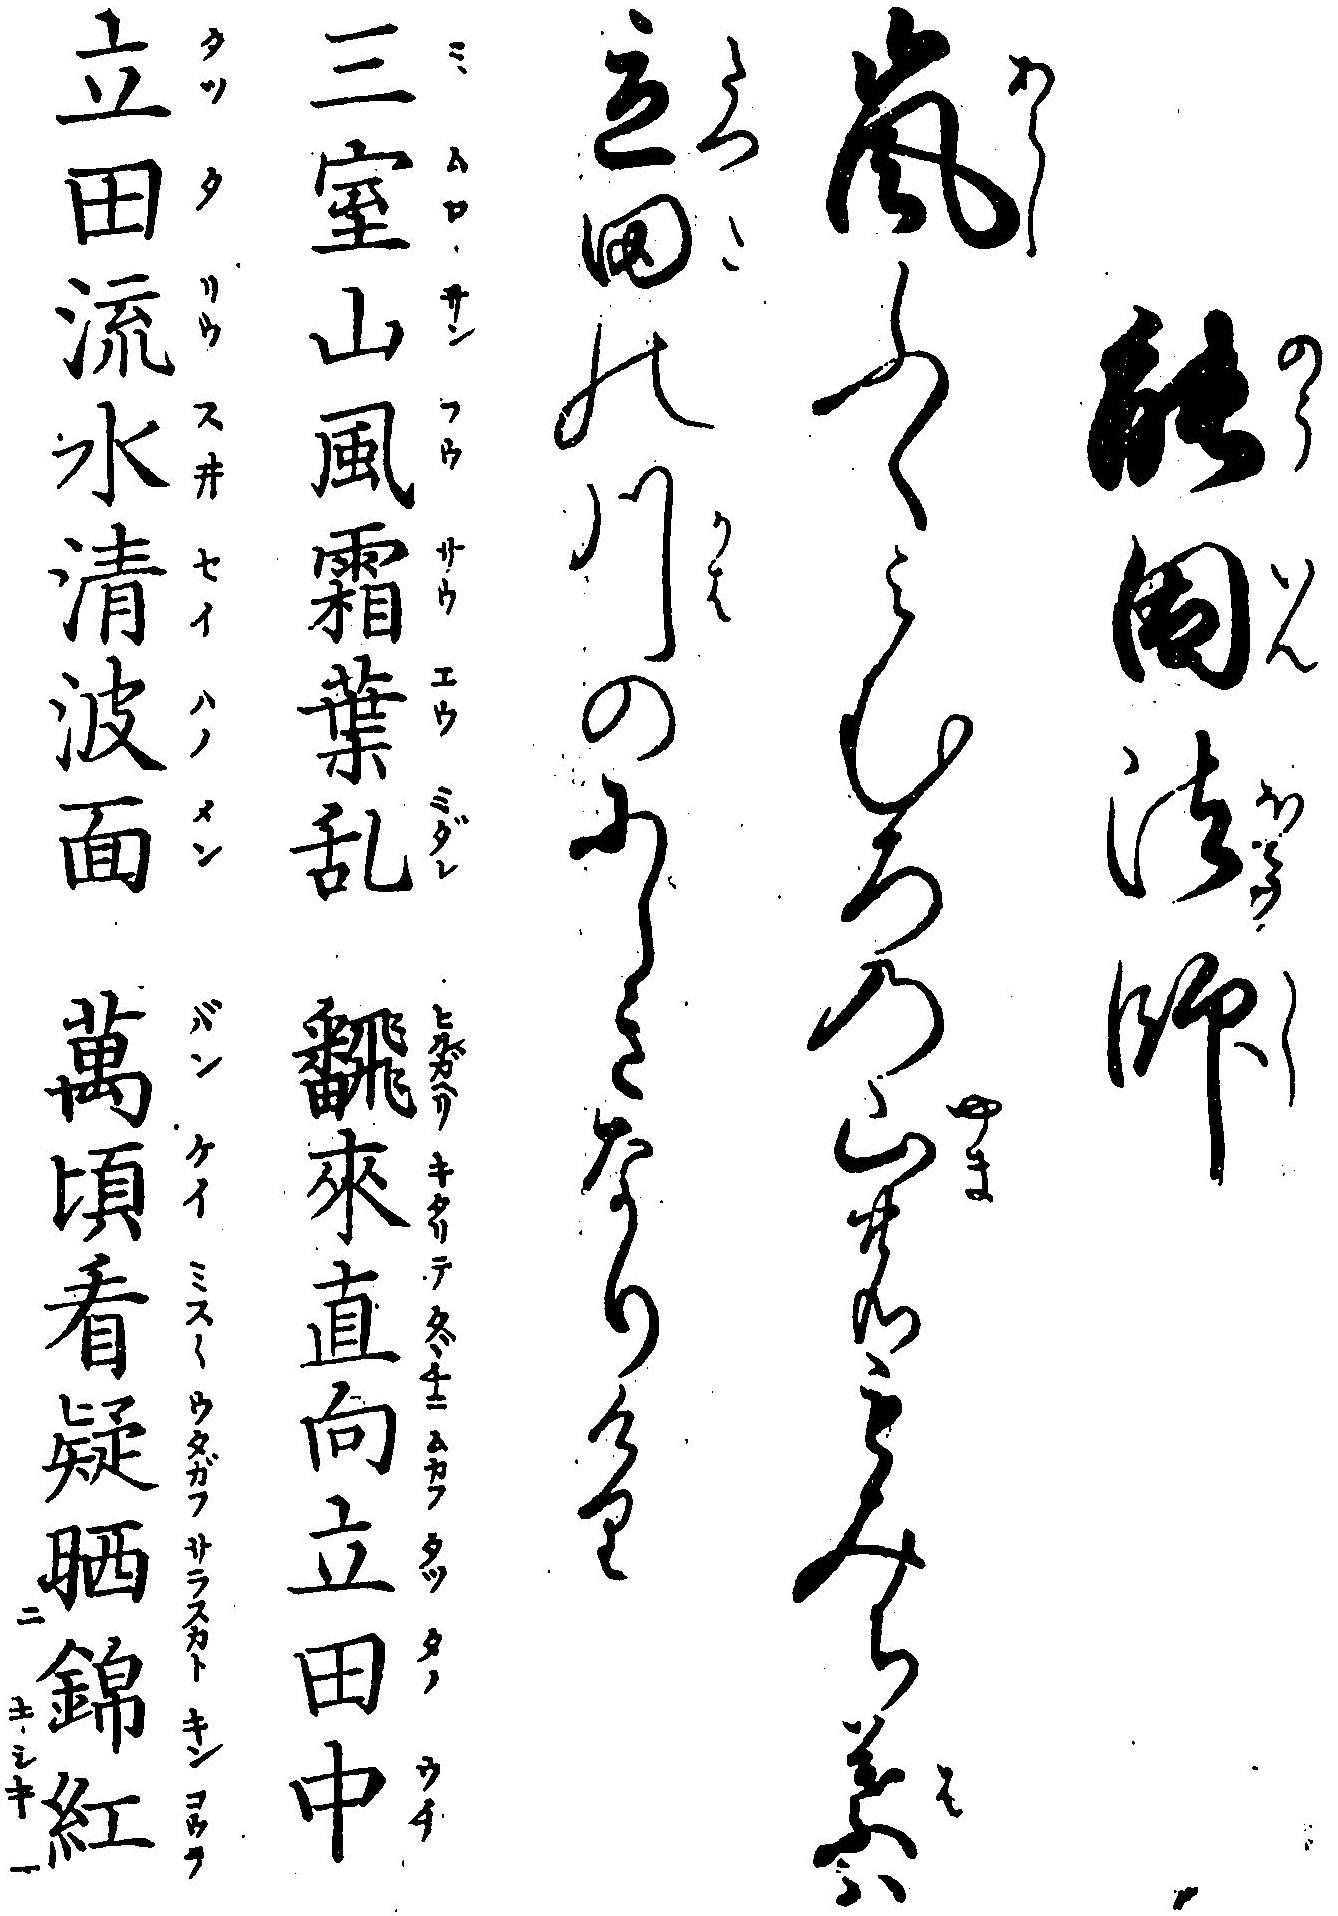 能因法師
嵐ふくみむろの山のもみち葉ハ
立田の川のにしきなりけり
三室山風霜葉乱 翻來直向立田中
立田流水清波面 萬頃看疑晒錦紅